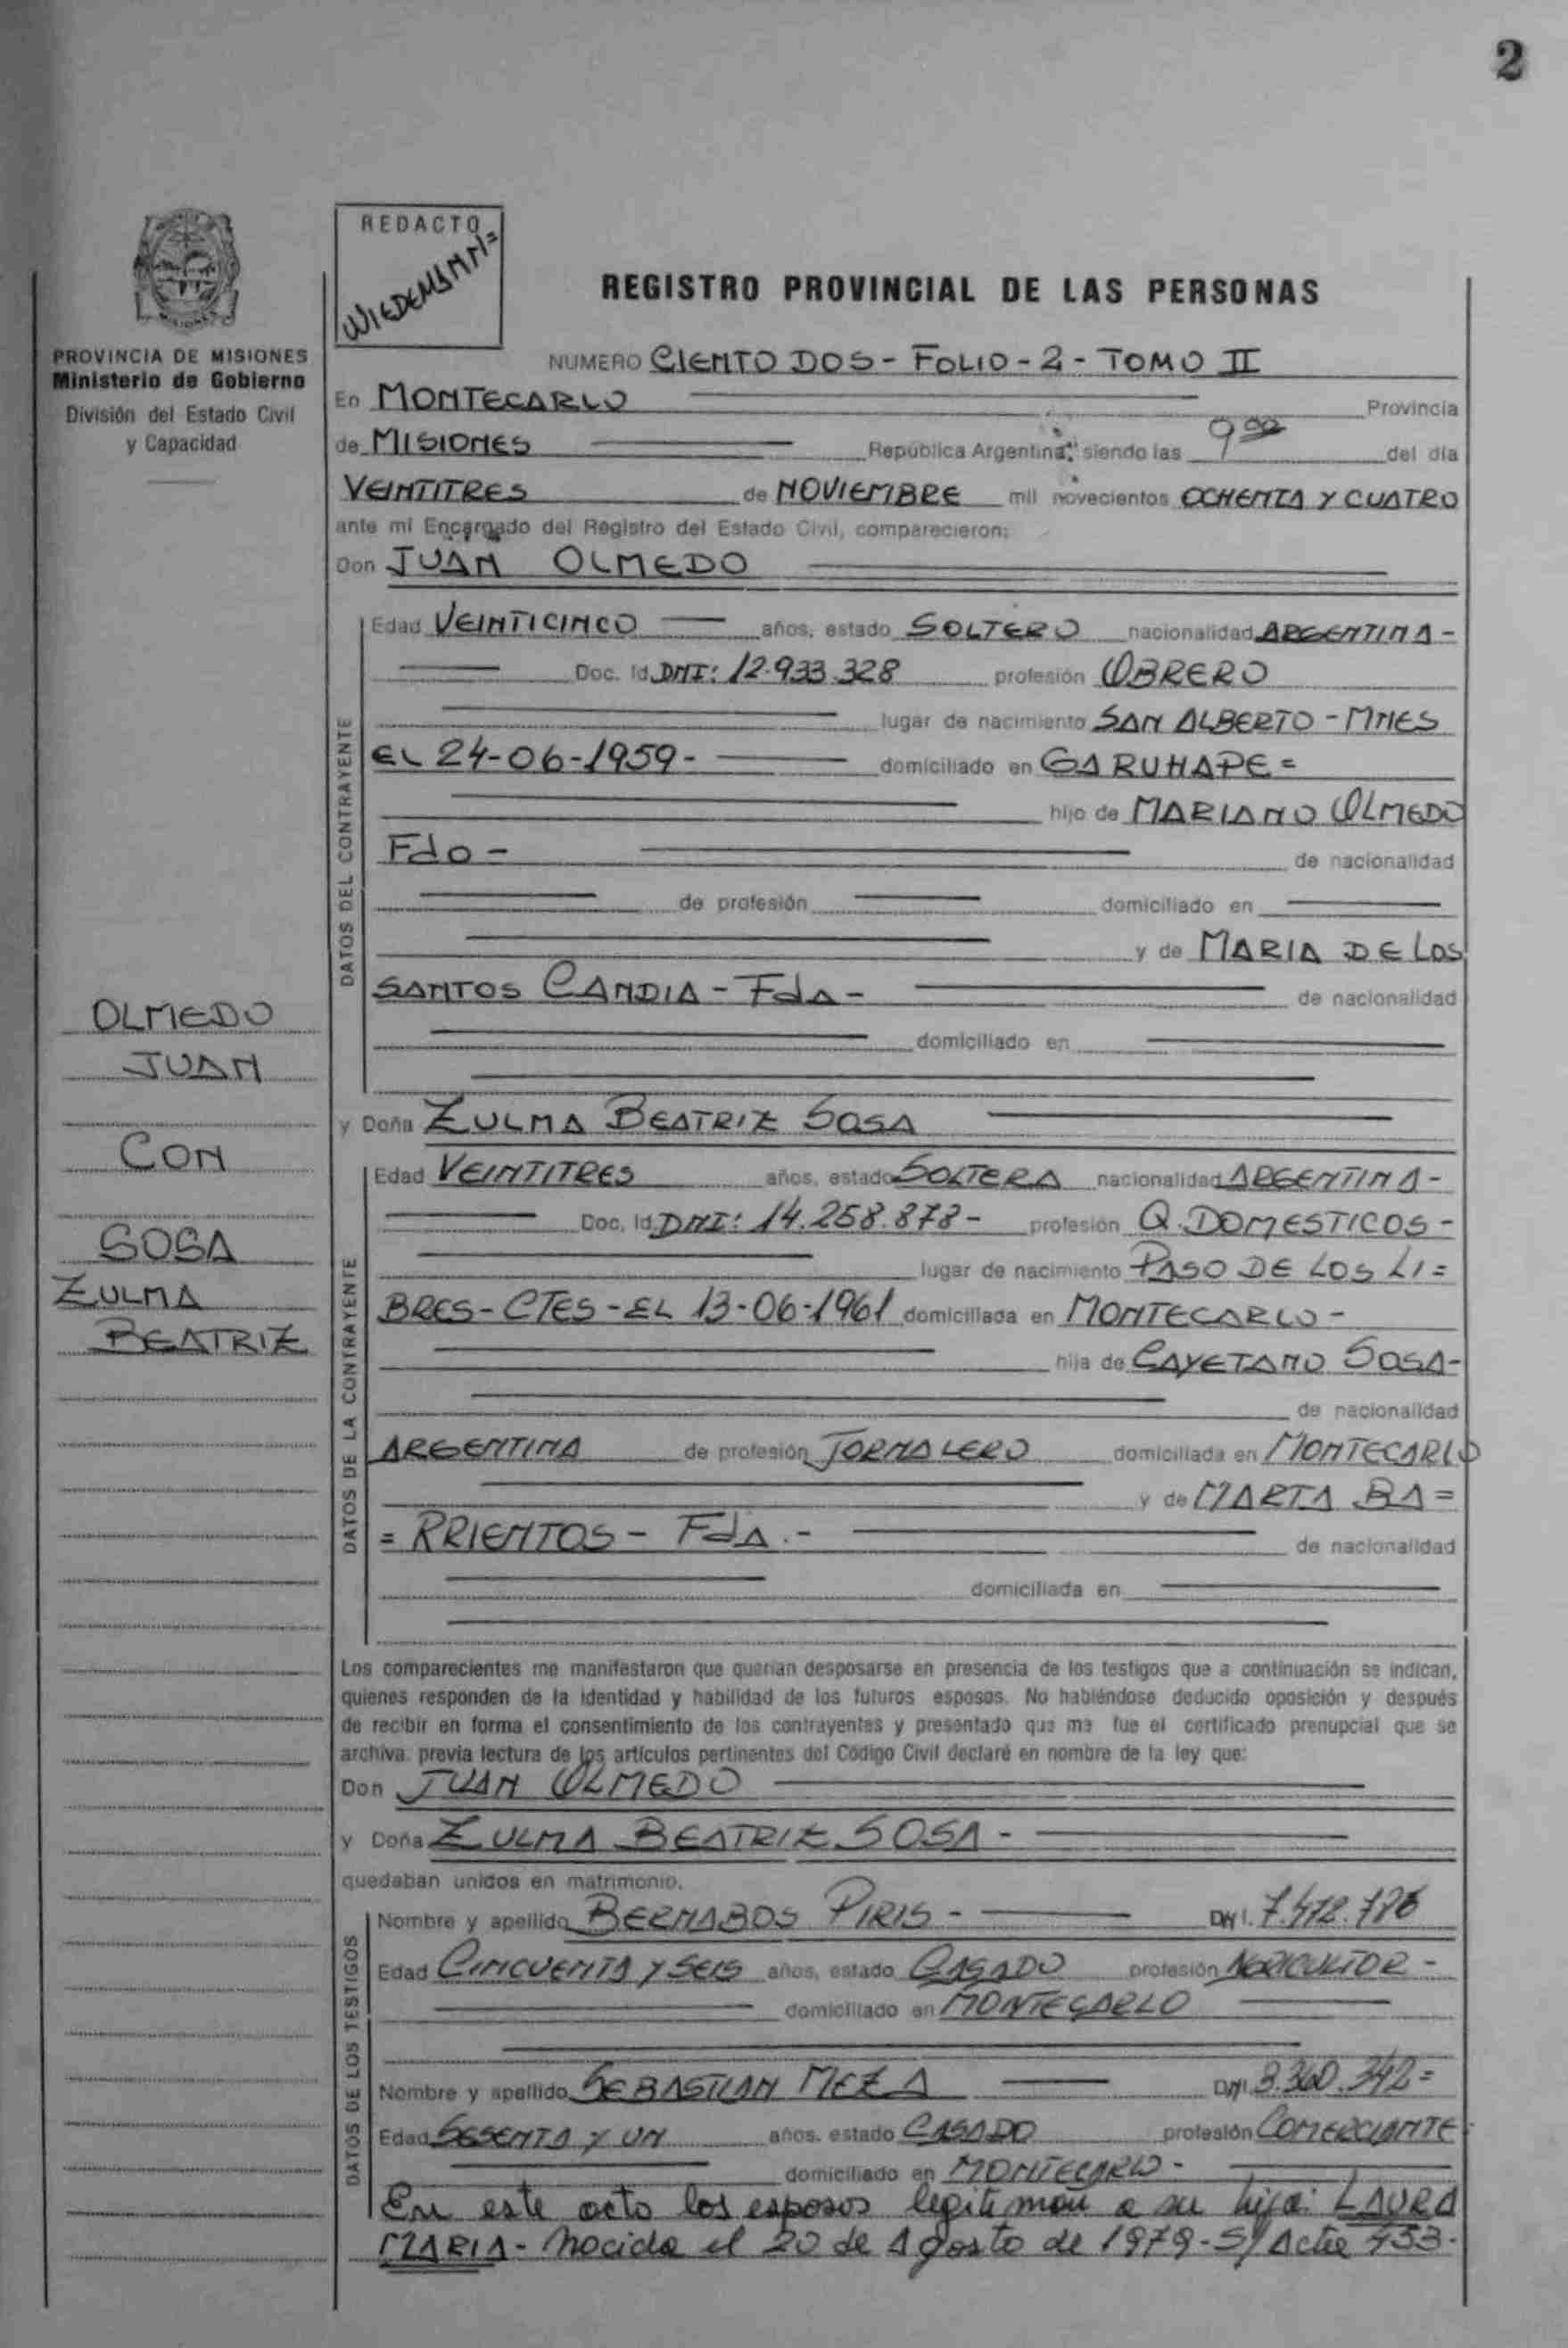 2
REDACTO
WIEDEMANN=
REGISTRO PROVINCIAL DE LAS PERSONAS
PROVINCIA DE MISIONES
Ministerio de Gobierno
División del Estado Civil
y Capacidad
NUMERO CIENTO DOS - FOLIO - 2 - TOMO II
En MONTECARLO Provincia
de MISIONES República Argentina, siendo las 9 00 del día
VEINTITRES de NOVIEMBRE mil novecientos OCHENTA Y CUATRO
ante mí Encargado del Registro del Estado Civil, comparecieron:
Don JUAN OLMEDO
DATOS DEL CONTRAYENTE
Edad VEINTICINCO años, estado SOLTERO nacionalidad ARGENTINA -
Doc. Id. DNI: 12.933.328 profesión OBRERO
lugar de nacimiento SAN ALBERTO - MNES
EL 24-06-1959- domiciliado en GARUHAPE =
hijo de MARIANO OLMEDO
Fdo - de nacionalidad
de profesión domiciliado en
y de MARIA DE LOS
SANTOS CANDIA - Fda - de nacionalidad
domiciliado en
OLMEDO
JUAN
CON
SOSA
ZULMA
BEATRIZ
y Doña ZULMA BEATRIZ SOSA
DATOS DE LA CONTRAYENTE
Edad VEINTITRES años, estado SOLTERA nacionalidad ARGENTINA -
Doc. Id. DNI: 14.258.878 - profesión Q. DOMESTICOS -
lugar de nacimiento PASO DE LOS LI =
BRES - CTES - EL 13-06-1961 domiciliada en MONTECARLO -
hija de CAYETANO SOSA -
de nacionalidad
ARGENTINA de profesión JORNALERO domiciliada en MONTECARLO
y de MARTA BA =
= RRIENTOS - Fda. - de nacionalidad
domiciliada en
Los comparecientes me manifestaron que querían desposarse en presencia de los testigos que a continuación se indican,
quienes responden de la identidad y habilidad de los futuros esposos. No habiéndose deducido oposición y después
de recibir en forma el consentimiento de los contrayentes y presentado que me fue el certificado prenupcial que se
archiva, previa lectura de los artículos pertinentes del Código Civil declaré en nombre de la ley que:
Don JUAN OLMEDO
y Doña ZULMA BEATRIZ SOSA -
quedaban unidos en matrimonio.
DATOS DE LOS TESTIGOS
Nombre y apellido BERNABOS PIRIS - DNI. 7.472.726
Edad CINCUENTA Y SEIS años, estado CASADO profesión AGRICULTOR -
domiciliado en MONTECARLO
Nombre y apellido SEBASTIAN MEZA DNI. 3.360.342 =
Edad SESENTA Y UN años, estado CASADO profesión COMERCIANTE
domiciliado en MONTECARLO -
En este acto los esposos legitiman a su hija: LAURA
MARIA - nacida el 20 de Agosto de 1979 - S/ Acta 453 -